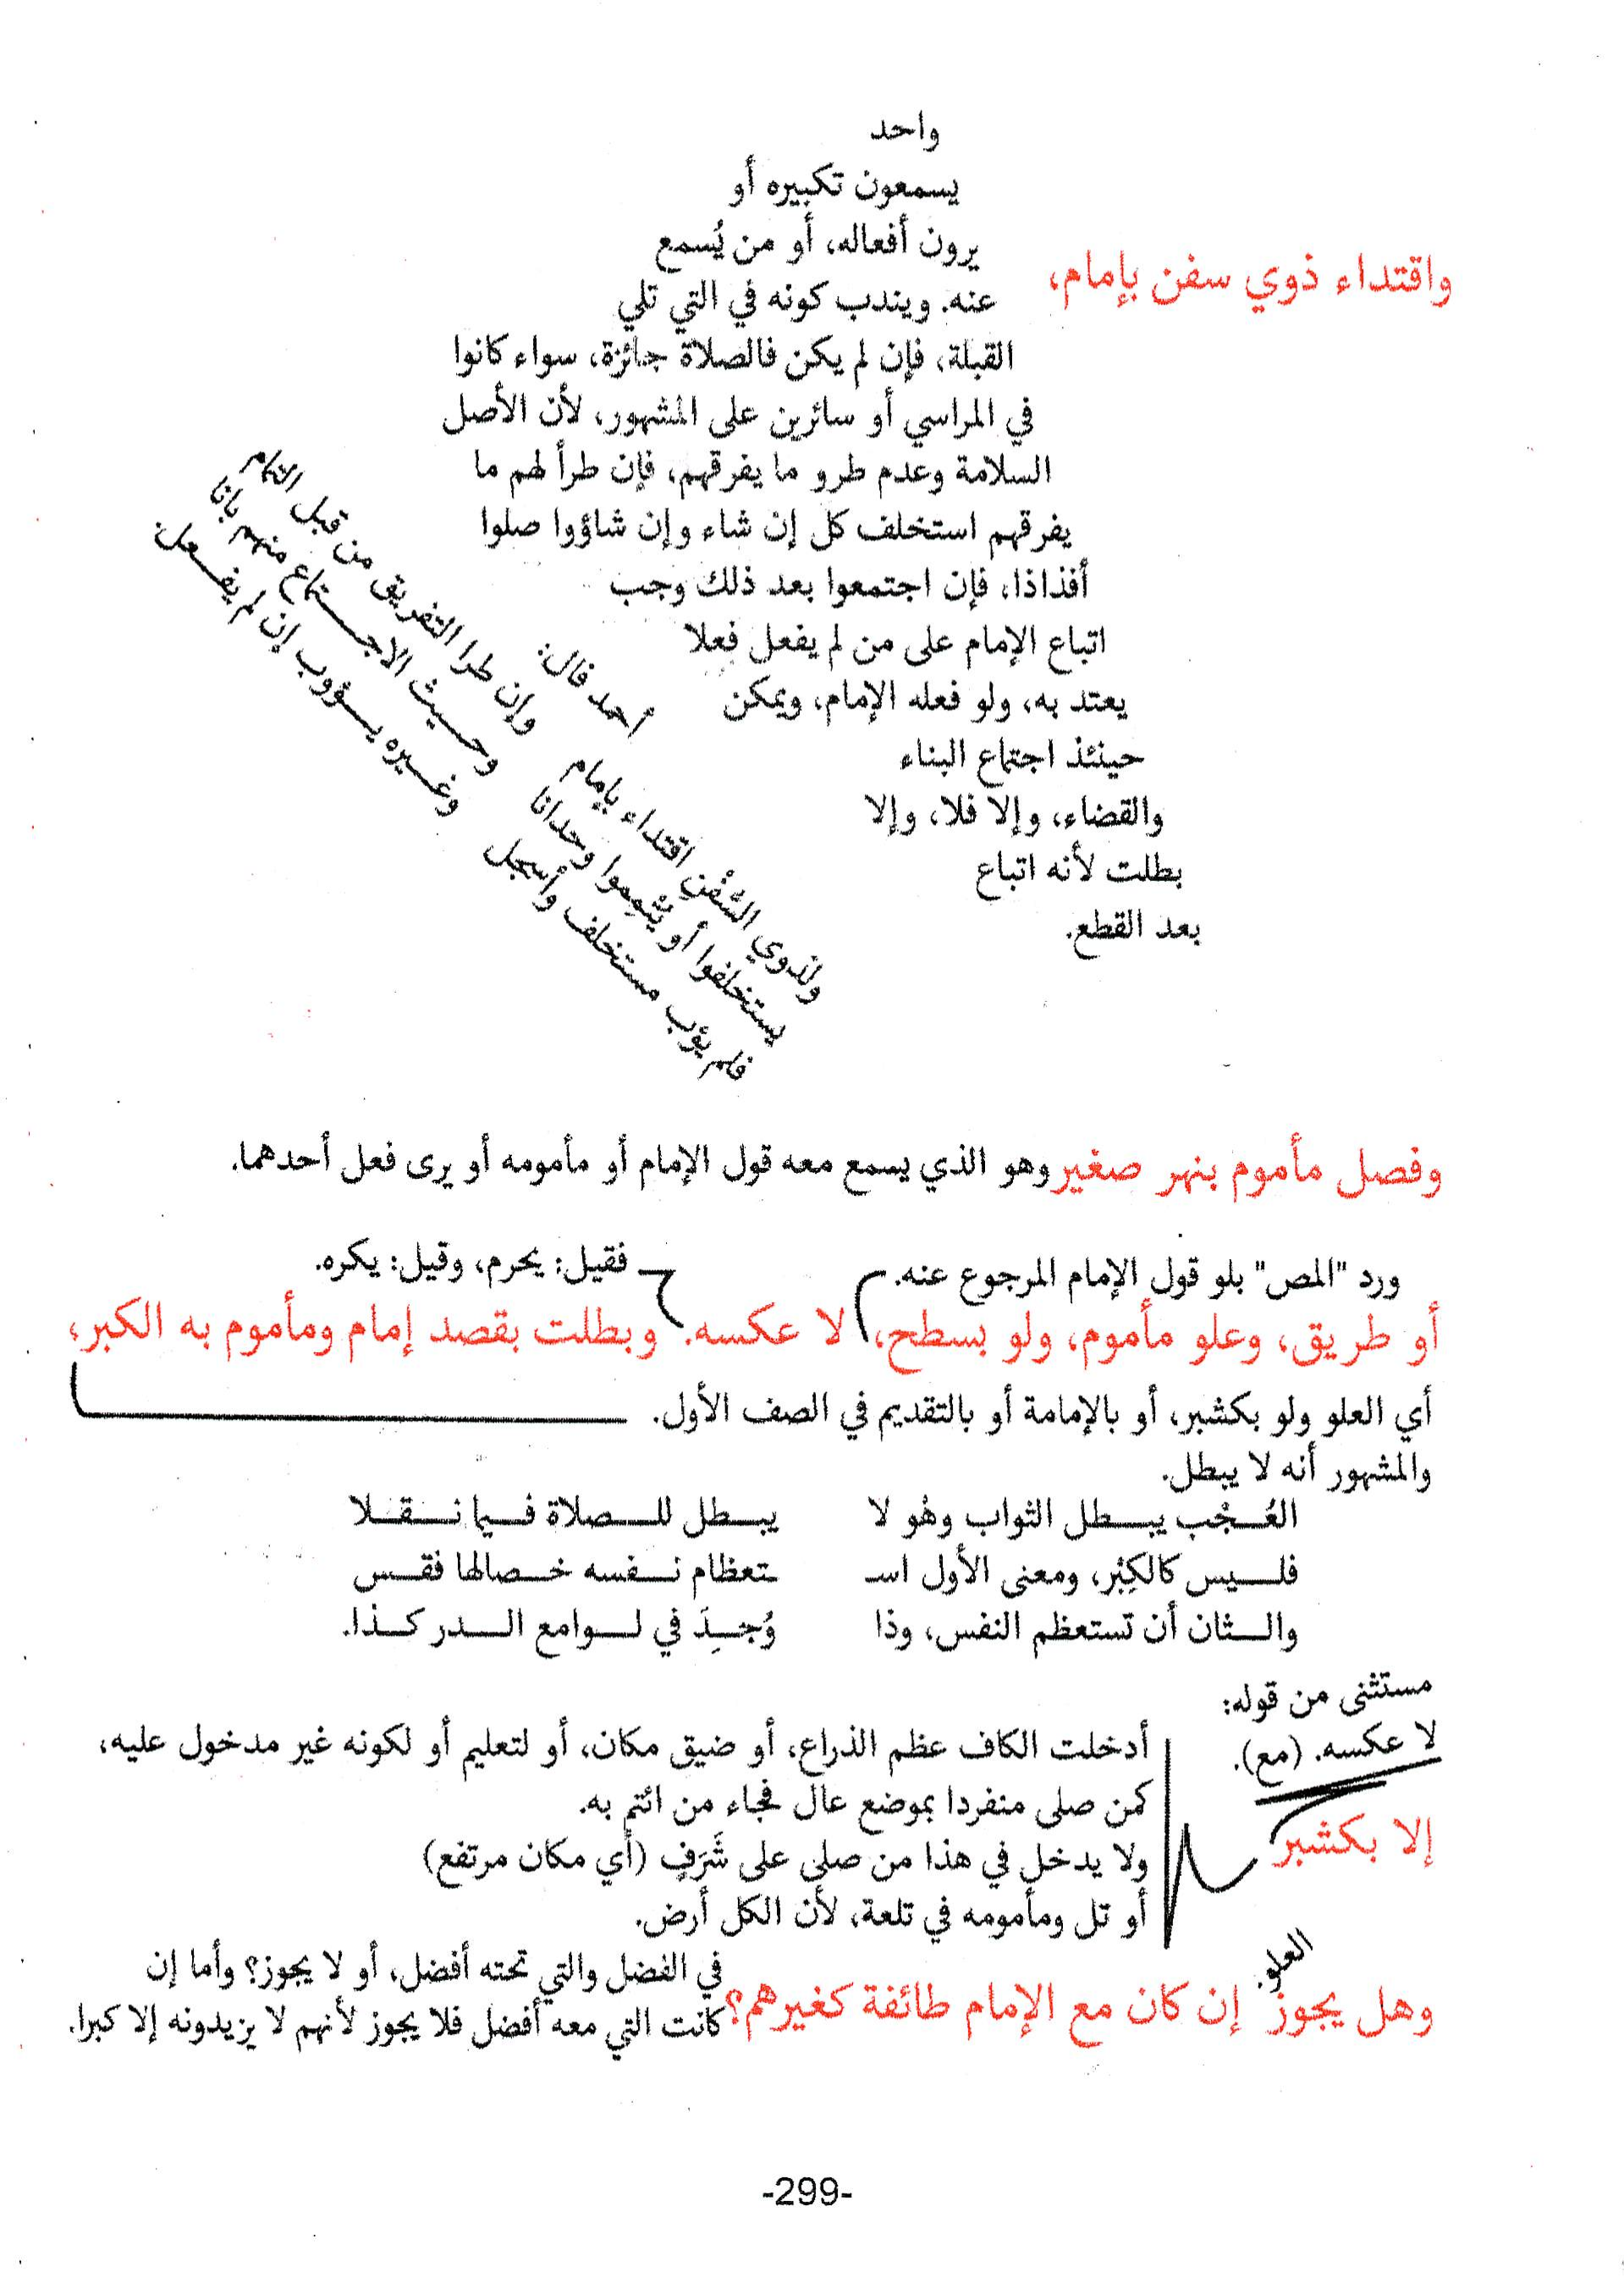 واقتداء ذوي سفن بإمام،
واحد
يسمعون تكبيره أو
يرون أفعاله، أو من يُسمع
عنه. ويندب كونه في التي تلي
القبلة، فإن لم يكن فالصلاة جائزة، سواء كانوا
في المراسي أو سائرين على المشهور، لأن الأصل
السلامة وعدم طرو ما يفرقهم، فإن طرأ لهم ما
يفرقهم استخلف كل إن شاء وإن شاؤوا صلوا
أفذاذا، فإن اجتمعوا بعد ذلك وجب
اتباع الإمام على من لم يفعل فعلا
يعتد به، ولو فعله الإمام، ويمكن
حينئذ اجتماع البناء
والقضاء، وإلا فلا، وإلا
بطلت لأنه اتباع
بعد القطع.
أحمد قال:
ولذوي السُّفْنِ اقتداء بإمام وإن طرا التفريق من قبل التمام
يستخلفوا أو يُتْمِموا وحدانا وحسيث الاجستماع منهم بانا
فلم يؤب مستخلف وأسجل وغسيره يسؤوب إن لم يفسعل.
وفصل مأموم بنهر صغير وهو الذي يسمع معه قول الإمام أو مأمومه أو يرى فعل أحدهما.
ورد "المص" بلو قول الإمام المرجوع عنه. فقيل: يحرم، وقيل: يكره.
أو طريق، وعلو مأموم، ولو بسطح، لا عكسه. وبطلت بقصد إمام ومأموم به الكبر،
أي العلو ولو بكشبر، أو بالإمامة أو بالتقديم في الصف الأول.
والمشهور أنه لا يبطل.
العُـجْب يبـطل الثواب وهْو لا يبـطل للـصلاة فـيما نـقـلا
فلـيس كالكِبْر، ومعنى الأول اسـ ـتعظام نـفسه خـصالها فقـس
والـثان أن تستعظم النفس، وذا وُجـِدَ في لـوامع الـدر كـذا.
مستثنى من قوله:
لا عكسه. (مع).
إلا بكشبر
أدخلت الكاف عظم الذراع، أو ضيق مكان، أو لتعليم أو لكونه غير مدخول عليه،
كمن صلى منفردا بموضع عال فجاء من ائتم به.
ولا يدخل في هذا من صلى على شَرَفٍ (أي مكان مرتفع)
أو تل ومأمومه في تلعة، لأن الكل أرض.
العلو.
وهل يجوز إن كان مع الإمام طائفة كغيرهم؟
في الفضل والتي تحته أفضل، أو لا يجوز؟ وأما إن
كانت التي معه أفضل فلا يجوز لأنهم لا يزيدونه إلا كبرا.
-299-